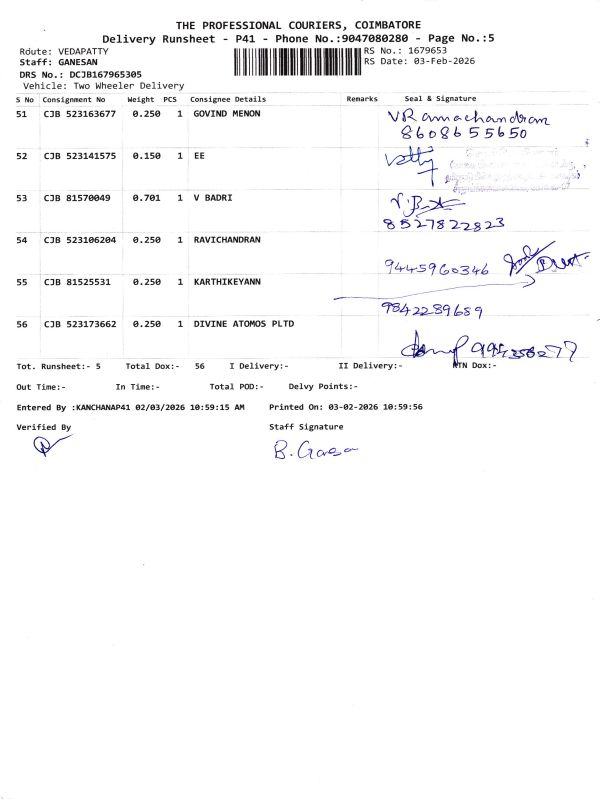 THE PROFESSIONAL COURIERS, COIMBATORE
Delivery Runsheet - P41 - Phone No.:9047080280 - Page No.:5
Route: VEDAPATTY RS No.: 1679653
Staff: GANESAN RS Date: 03-Feb-2026
DRS No.: DCJB167965305
Vehicle: Two Wheeler Delivery
S No Consignment No Weight PCS Consignee Details Remarks Seal & Signature
51 CJB 523163677 0.250 1 GOVIND MENON VRamachandran
8608655650
52 CJB 523141575 0.150 1 EE
53 CJB 81570049 0.701 1 V BADRI
8527822823
54 CJB 523106204 0.250 1 RAVICHANDRAN
9445960346
55 CJB 81525531 0.250 1 KARTHIKEYANN
9842289689
56 CJB 523173662 0.250 1 DIVINE ATOMOS PLTD
Tot. Runsheet:- 5 Total Dox:- 56 I Delivery:- II Delivery:- RTN Dox:-
Out Time:- In Time:- Total POD:- Delvy Points:-
Entered By :KANCHANAP41 02/03/2026 10:59:15 AM Printed On: 03-02-2026 10:59:56
Verified By Staff Signature